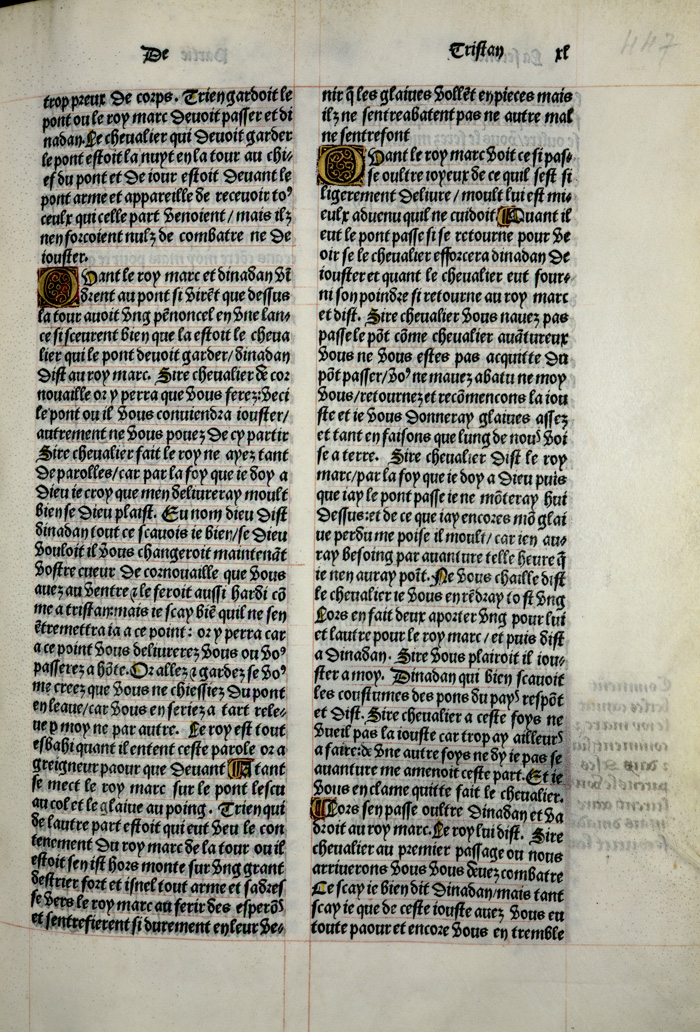 De
Tristan xl
trop preux de corps. Trien gardoit le
pont ou le roy marc devoit passer et di
nadan. Le chevalier qui devoit garder
le pont estoit la nuyt en la tour au chi⸗
ef du pont et de iour estoit devant le
pont arme et appareille de recevoir toꝰ
ceulx qui celle part venoient / mais ilz
nenforcoient nulz de combatre ne de
iouster.
Quant le roy marc et dinadan vi
drent au pont si virēt que dessus
la tour avoit vng pēnoncel en vne lan⸗
ce si sceurent bien que la estoit le cheva
lier qui le pont devoit garder / dinadan
dist au roy marc. Sire chevalier de cor
nouaille or y perra que vous ferez: veci
le pont ou il vous conviendra iouster /
autrement ne vous povez de cy partir
Sire chevalier fait le roy ne ayez tant
de parolles / car par la foy que ie doy a
dieu ie croy que men delivreray moult
bien se dieu plaist. Eu nom dieu dist
dinadan tout ce scavois ie bien / se dieu
vouloit il vous changeroit maintenāt
vostre cueur de cornouaille que vous
avez au ventre ⁊ le feroit aussi hardi cō
me a tristan: mais ie scay biē quil ne sen
ētremettra ia a ce point: or y perra car
a ce point vous delivrerez vous ou voꝰ
passerez a hōte. Or allez ⁊ gardez se voꝰ
me creez que vous ne chiessiez du pont
en leaue / car vous en seriez a tart rele⸗
ue p moy ne par autre. Le roy est tout
esbahi quant il entent ceste parole or a
greigneur paour que devant A tant
se mect le roy marc sur le pont lescu
au col et le glaive au poing. Trien qui
de lautre part estoit qui eut veu le con
tenement du roy marc de la tour ou il
estoit sen ist hors monte sur vng grant
destrier fort et isnel tout arme et sadres
se vers le roy marc au ferir des esperōs
et sentrefierent si durement en leur ve⸗
nir q̄ les glaives vollēt en pieces mais
ilz ne sentreabatent pas ne autre mal
ne sentrefont
Quant le roy marc voit ce si pas⸗
se oultre ioyeux de ce quil sest si
ligerement delivre / moult lui est mi⸗
eulx advenu quil ne cuidoit Quant il
eut le pont passe si se retourne pour ve
oir se le chevalier efforcera dinadan de
iouster et quant le chevalier eut four⸗
ni son poindre si retourne au roy marc
et dist. Sire chevalier vous navez pas
passe le pōt cōme chevalier avātureux
vous ne vous estes pas acquitte du
pōt passer / voꝰ ne mavez abatu ne moy
vous / retournez et recōmencons la iou
ste et ie vous donneray glaives assez
et tant en faisons que lung de nous voi
se a terre. Sire chevalier dist le roy
marc / par la foy que ie doy a dieu puis
que iay le pont passe ie ne mōteray hui
dessus: et de ce que iay encores mō glai
ve perdu me poise il moult / car ien au⸗
ray besoing par avanture telle heure q̄
ie nen auray poīt. Ne vous chaille dist
le chevalier ie vous en rēdray tost vng
Lors en fait deux aporter vng pour lui
et lautre pour le roy marc / et puis dist
a dinadan. Sire vous plairoit il iou⸗
ster a moy. Dinadan qui bien scavoit
les coustumes des pons du pays respōt
et dist. Sire chevalier a ceste foys ne
vueil pas la iouste car trop ay ailleurs
a faire: de vne autre foys ne dy ie pas se
avanture me amenoit ceste part. Et ie
vous en clame quitte fait le chevalier.
Lors sen passe oultre dinadan et va
droit au roy marc. Le roy lui dist. Sire
chevalier au premier passage ou nous
arriverons vous vous devez combatre
Ce scay ie bien dit dinadan / mais tant
scay ie que de ceste iouste avez vous eu
toute paour et encore vous en tremble